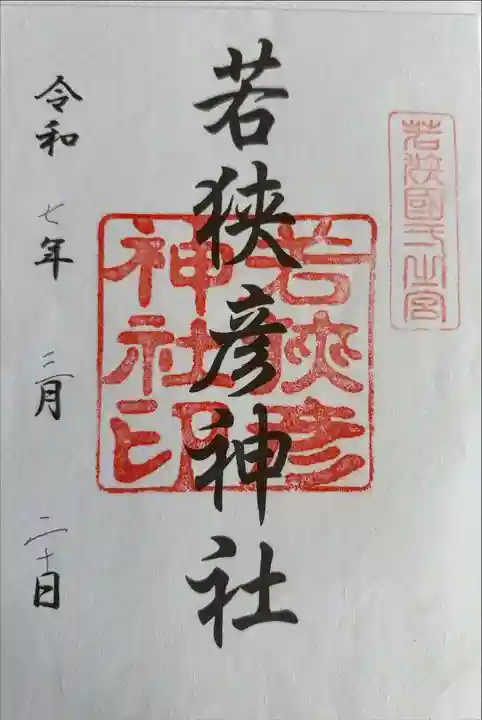 若狹國一之宮
若狹彦神社
若狹彦
神社印
令和七年三月二十日